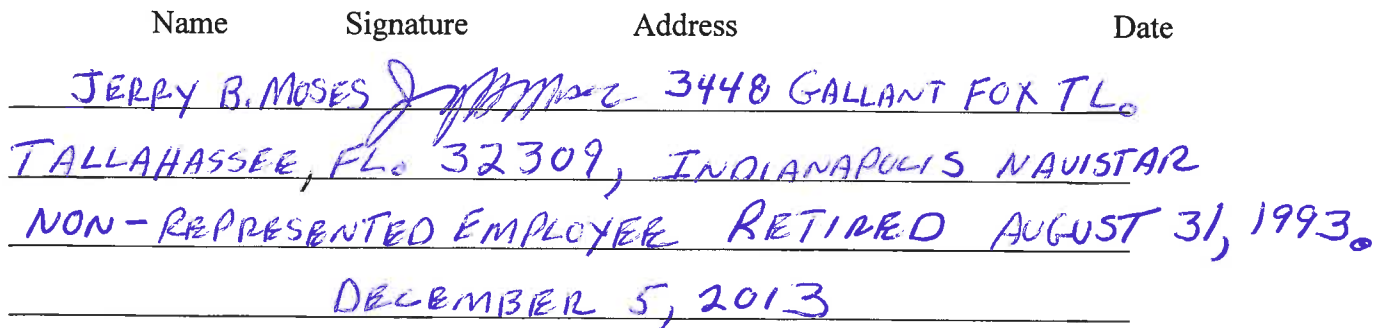 Name Signature Address Date
JERRY B. MOSES Jerry B Moses 3448 GALLANT FOX TL.
TALLAHASSEE, FL. 32309, INDIANAPOLIS NAVISTAR
NON-REPRESENTED EMPLOYEE RETIRED AUGUST 31, 1993.
DECEMBER 5, 2013